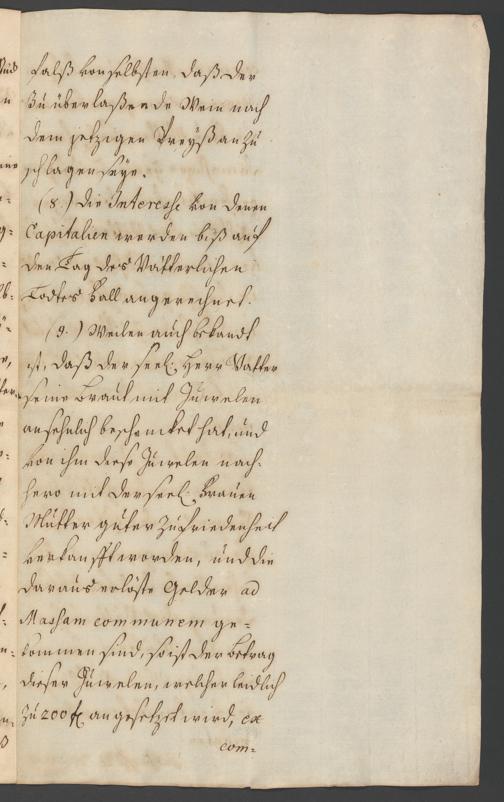 falß von selbsten, daß der
zu überlaßende Wein nach
dem jetzigen Preyß anzu
schlagen seye.
(8.) die Interesse von denen
Capitalien werden biß auf
den Tag des Vätterlichen
Todtes Ball angerechnet.
(9.) Weilen auch bekandt
ist, daß der seel. Herr Vatter
seine Braut mit Juwelen
ansehnlich beschencket hat, und
von ihm diese Juwelen nach-
hero mit der seel. Frauen
Mutter guter Zufriedenheit
verkaufft worden, und die
daraus erlößte Gelder ad
Massam communem ge=
kommen sind, so ist der Betrag
dieser Juwelen, welcher leidlich
zu 200 f. angesetzet wird, ex
com=